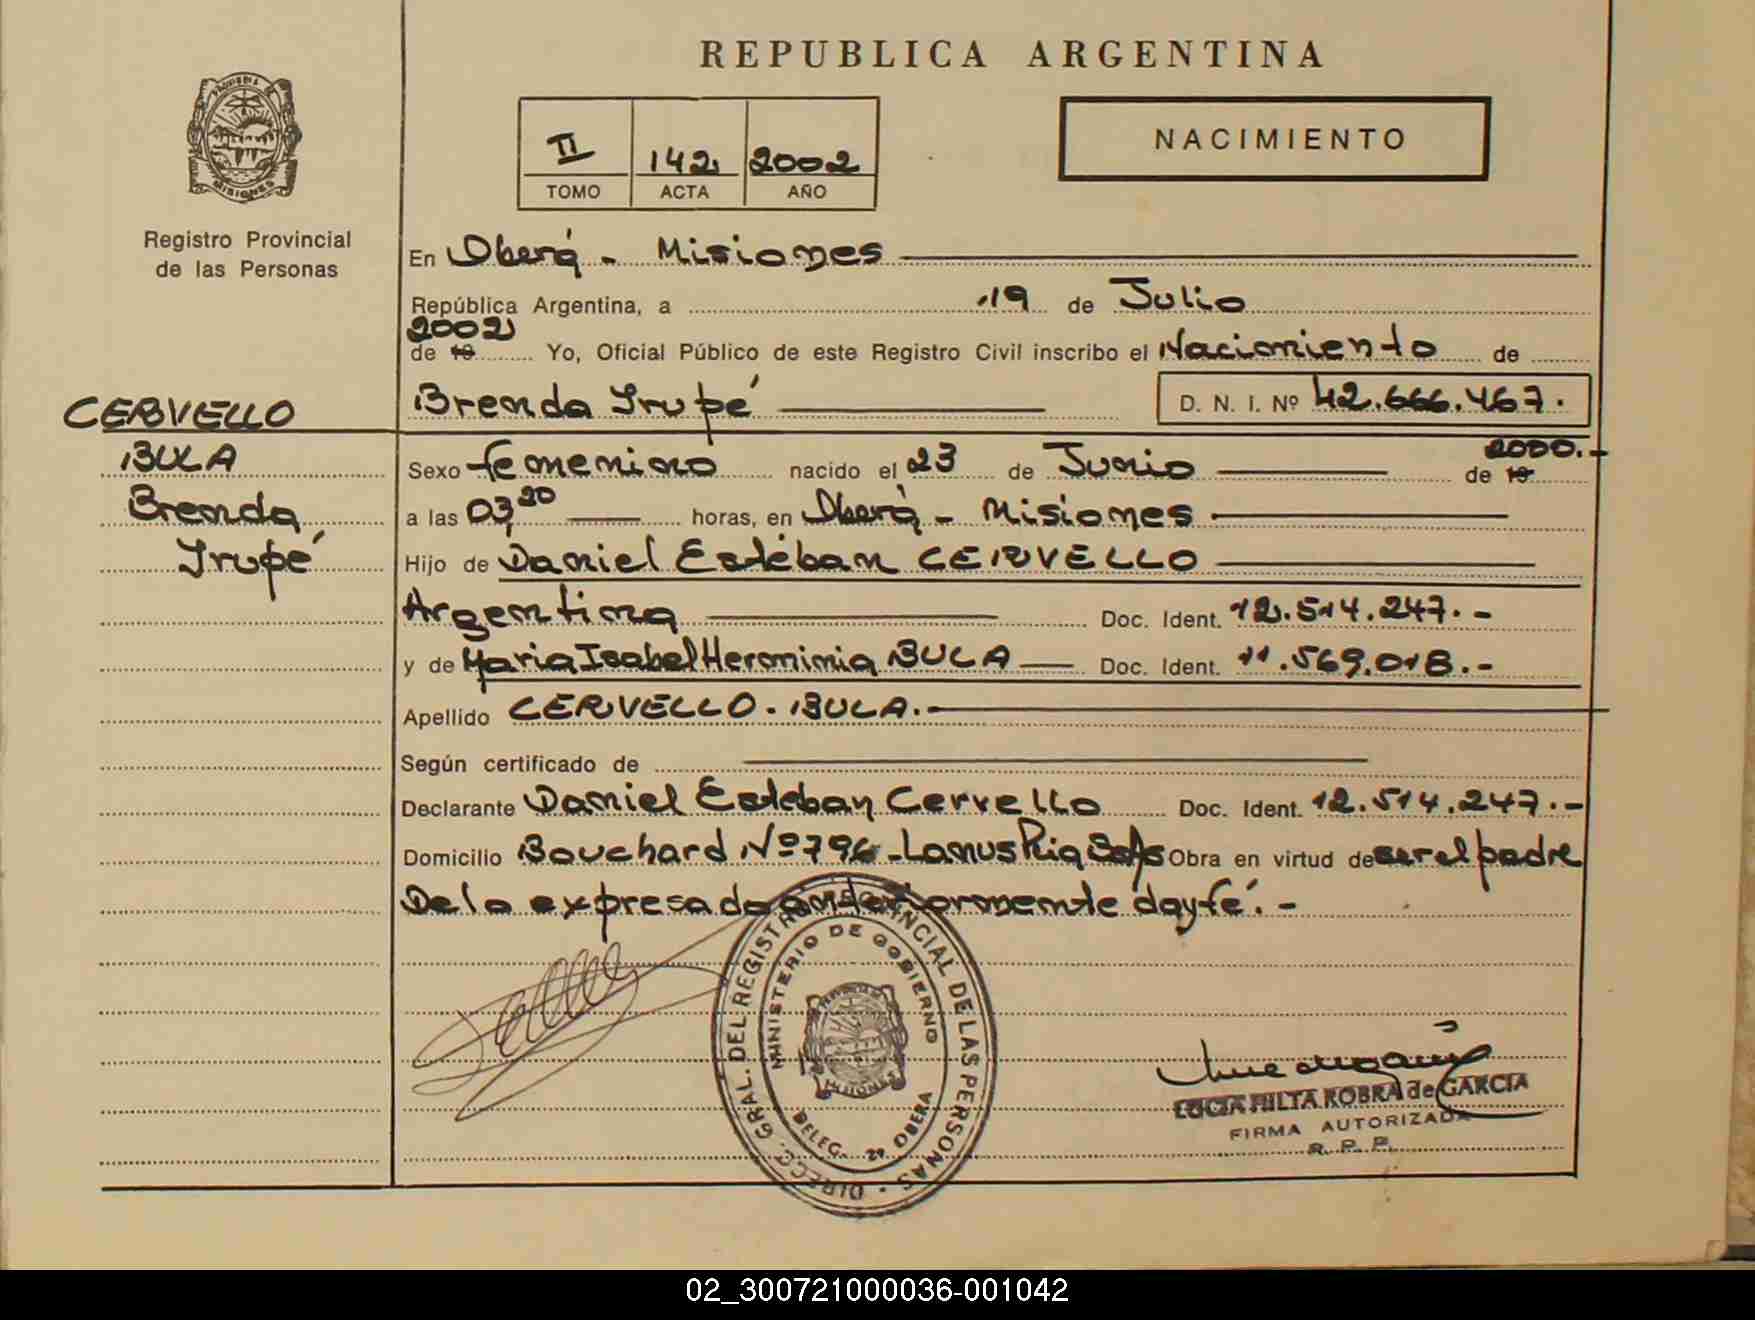 REPUBLICA ARGENTINA
PROVINCIA DE
MISIONES
Registro Provincial
de las Personas
II 142 2002
TOMO ACTA AÑO
NACIMIENTO
En Oberá - Misiones
República Argentina, a 19 de Julio
2002
de 19 Yo, Oficial Público de este Registro Civil inscribo el Nacimiento de
Brenda Irupé D. N. I. Nº 42.666.467.
CERVELLO
BULA
Brenda
Irupé
2000.-
Sexo femenino nacido el 23 de Junio de 19
a las 03,20 horas, en Oberá - Misiones
Hijo de Daniel Esteban CERVELLO
Argentina Doc. Ident. 12.514.247.-
y de Maria Isabel Herminia BULA Doc. Ident. 11.569.018.-
Apellido CERVELLO - BULA.-
Según certificado de
Declarante Daniel Esteban Cervello Doc. Ident. 12.514.247.-
Domicilio Bouchard Nº 796 - Lanus Obra en virtud de ser el padre
De lo expresado anteriormente doy fé.-
DIRECC. GRAL. DEL REGISTRO PROVINCIAL DE LAS PERSONAS
MINISTERIO DE GOBIERNO
MISIONES
DELEG. 2ª OBERA
ROBRA de GARCIA
FIRMA AUTORIZADA
R. P. P.
02_300721000036-001042